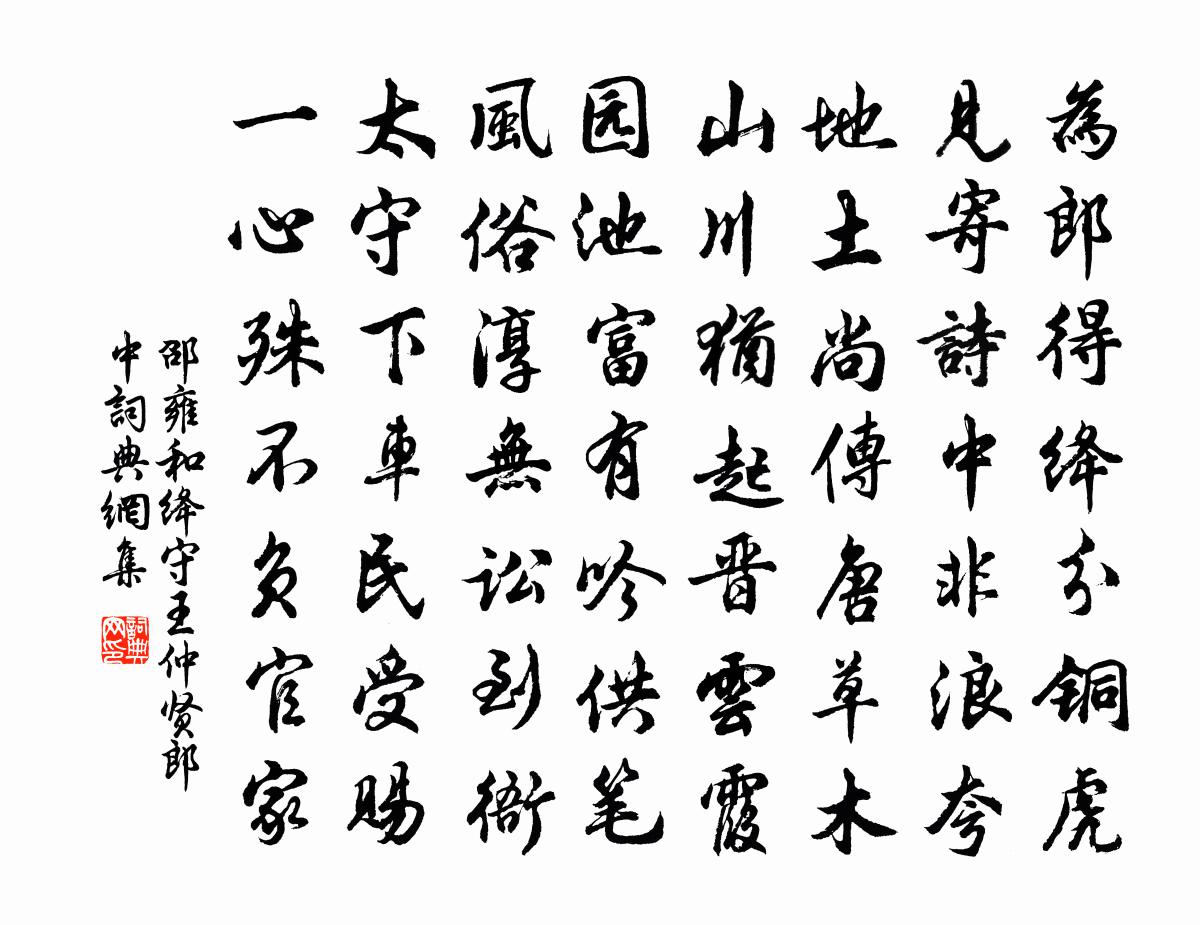 為郎得绛分铜虎
見寄詩中非浪夸
地土尚傳唐草木
山川猶起晋雲霞
园池富有吟供笔
風俗淳無訟到衙
太守下車民受赐
一心殊不负官家
邵雍和绛守王仲贤郎
中詞典網集
詞典网印